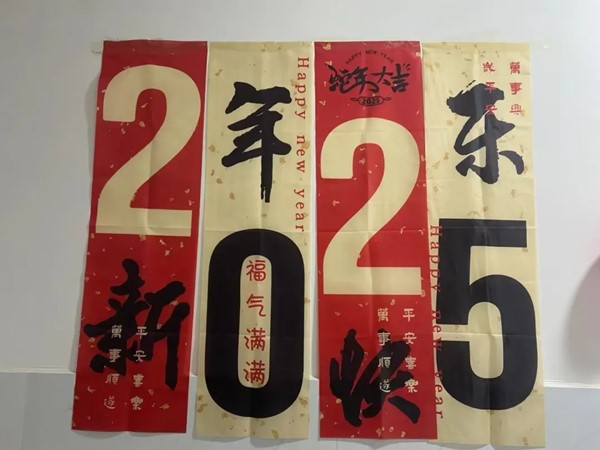 2
新
平安喜樂
萬事順遂
年
Happy new year
0
福气满满
HAPPY NEW YEAR
蛇年大吉
2025
2
快
平安喜樂
萬事順遂
乐
萬事興
歲平安
Happy new year
5